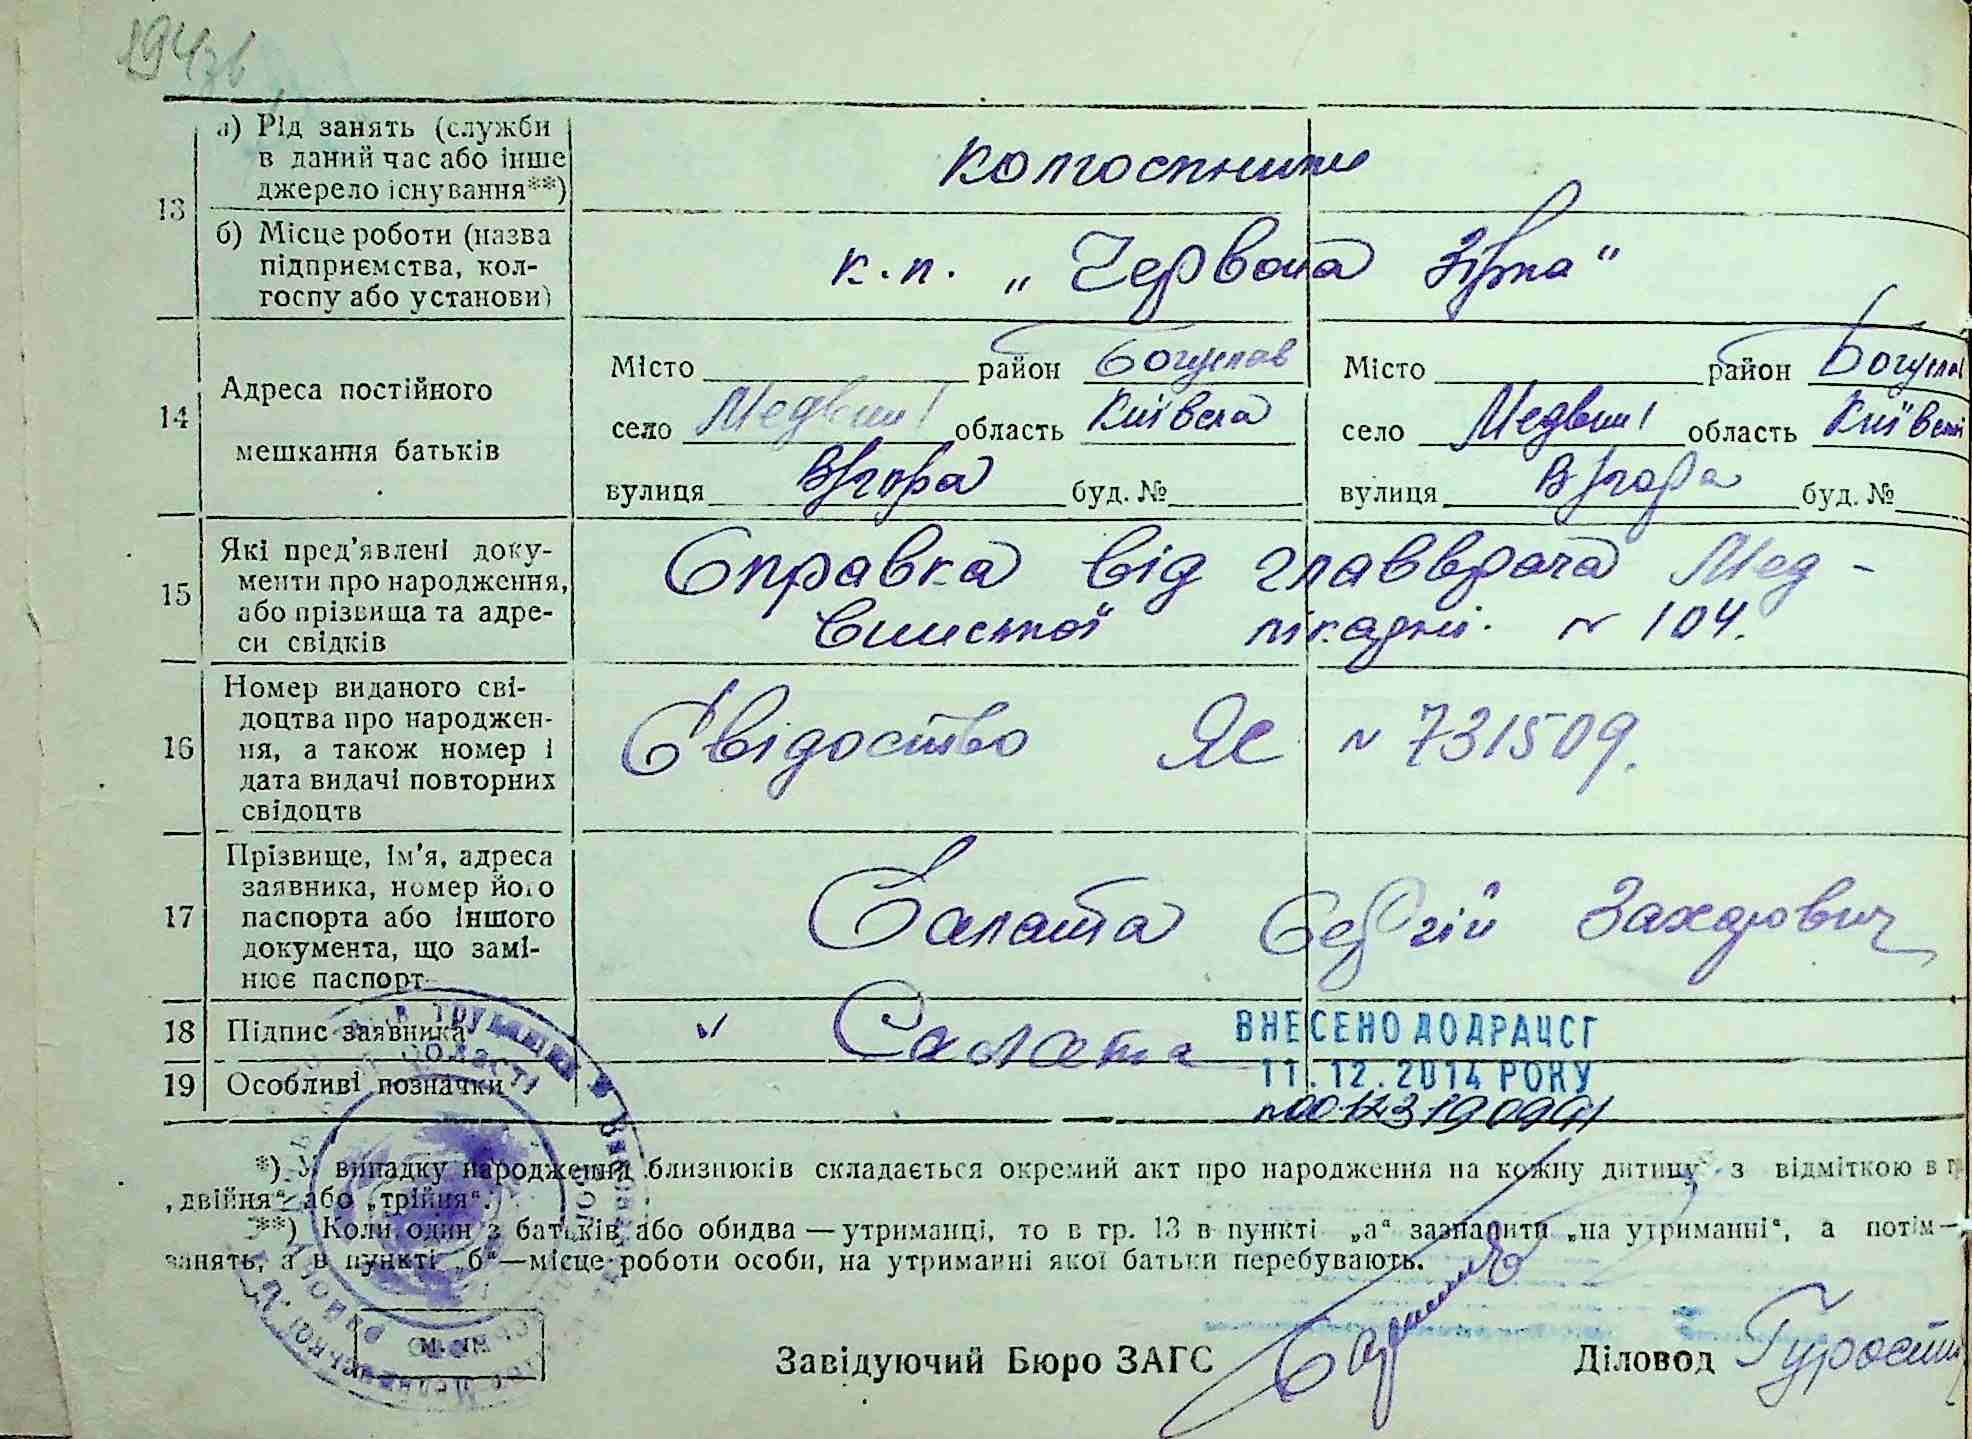 13
а) Рід занять (служби
в даний час або інше
джерело існування**)
колгоспники
б) Місце роботи (назва
підприємства, кол-
госпу або установи)
к.п. „Червона Зірка"
14
Адреса постійного
мешкання батьків
Місто район Богуслав
село Медвин область Київська
вулиця буд. №
Місто район Богуслав
село Медвин область
вулиця буд. №
15
Які пред'явлені доку-
менти про народження,
або прізвища та адре-
си свідків
Справка від главврача Мед-
винської лікарні. № 104.
16
Номер виданого сві-
доцтва про народжен-
ня, а також номер і
дата видачі повторних
свідоцтв
Свідоство ЯЄ № 731509.
17
Прізвище, ім'я, адреса
заявника, номер його
паспорта або іншого
документа, що замі-
нює паспорт
Салата Сергій Захарович
18
Підпис заявника
Салата
ВНЕСЕНО ДО ДРАЦСГ
19
Особливі позначки
11.12.2014 РОКУ
*) У випадку народження близнюків складається окремий акт про народження на кожну дитину з відміткою в
„двійня" або „трійня".
**) Коли один з батьків або обидва — утриманці, то в гр. 13 в пункті „а" зазначити „на утриманні", а потім —
занять, а в пункті „б"—місце роботи особи, на утриманні якої батьки перебувають.
Завідуючий Бюро ЗАГС
Діловод